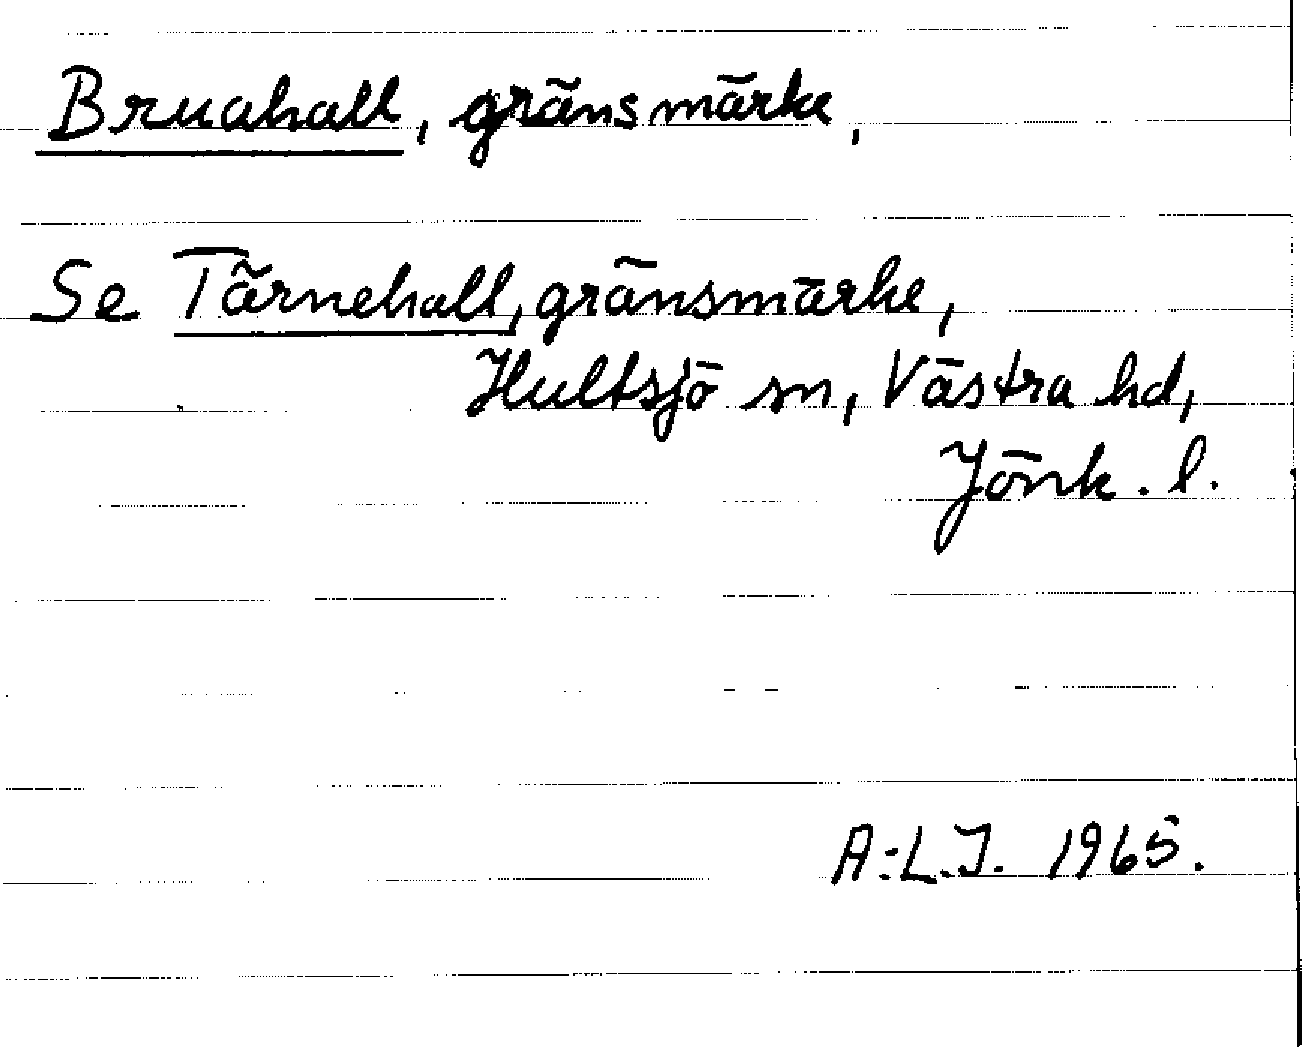 Bruahall, gränsmärke,
Se Tärnehall, gränsmärke,
Hultsjö sn, Västra hd,
Jönk. l.
A.-L.J. 1965.